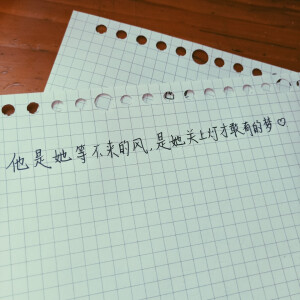 他是她等不来的风,是她关上灯才敢有的梦♡